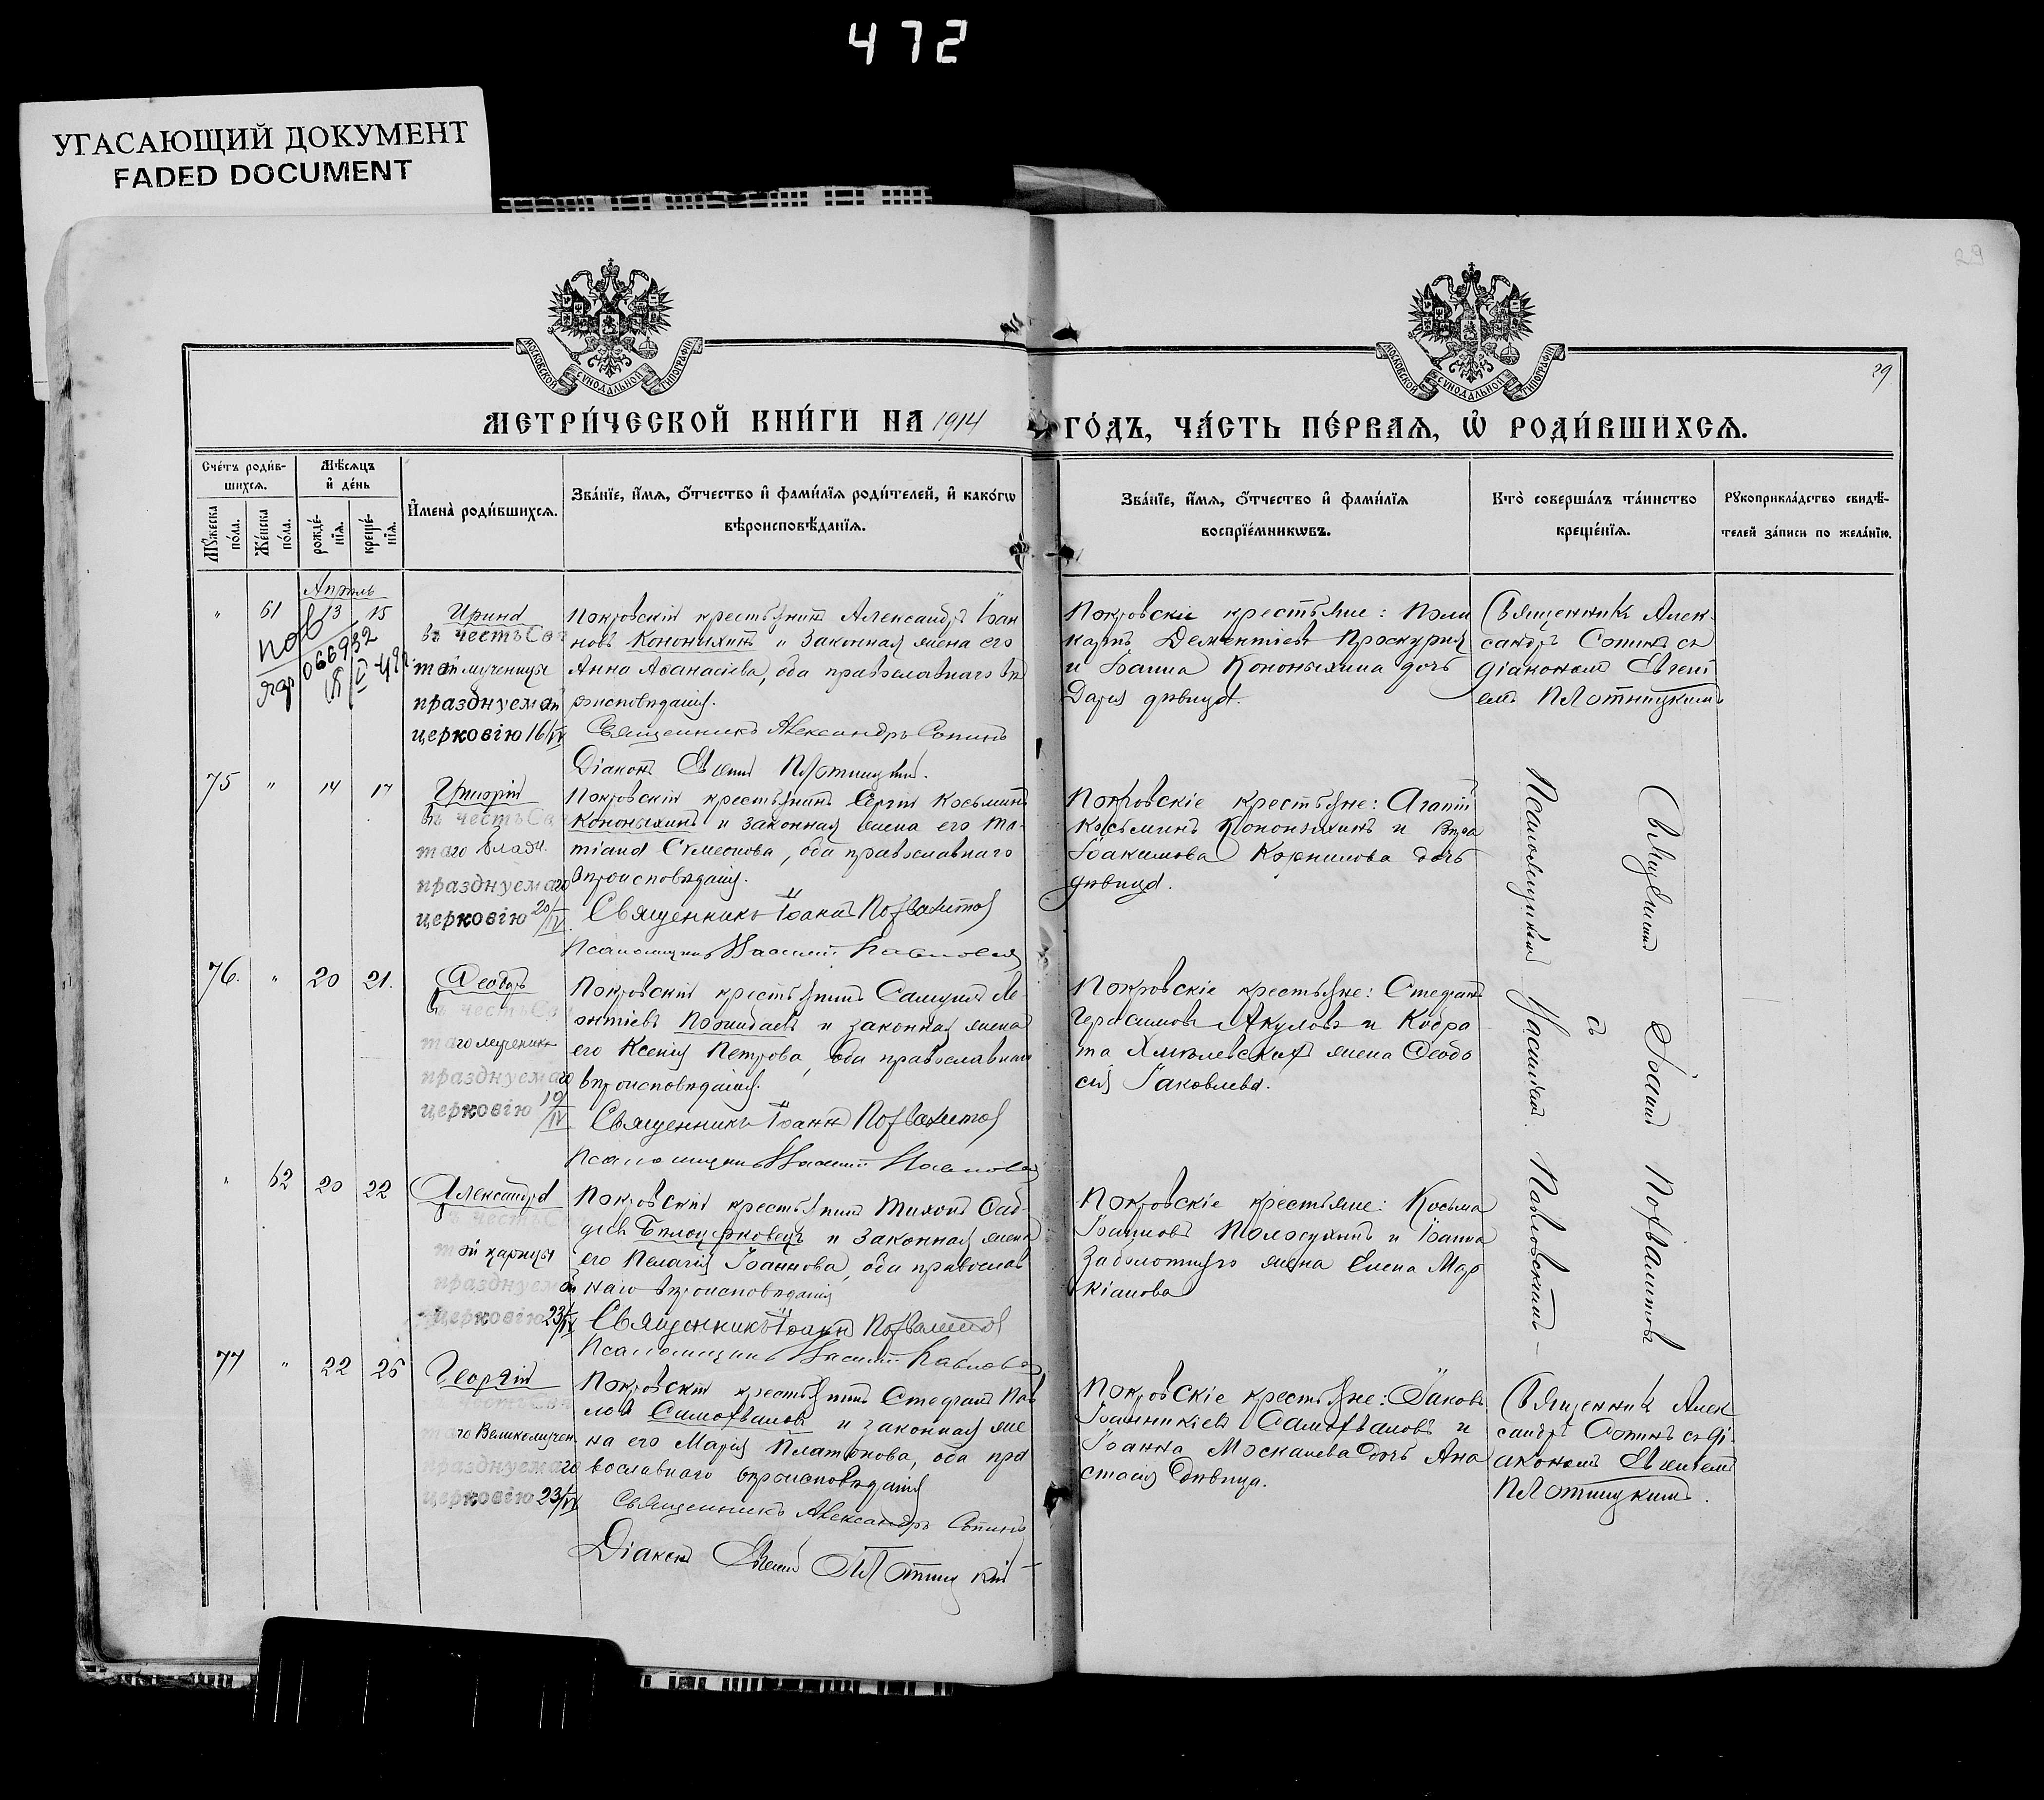 472
УГАСАЮЩИЙ ДОКУМЕНТ
FADED DOCUMENT
29
МОСКОВСКОЙ СѴНОДАЛЬНОЙ ТИПОГРАФІИ
МОСКОВСКОЙ СѴНОДАЛЬНОЙ ТИПОГРАФІИ
29
МЕТРИ́ЧЕСКОЙ КНИ́ГИ НА 1914 ГО́ДЪ, ЧА́СТЬ ПЕ́РВАѦ, Ѡ҆ РОДИ́ВШИХСѦ.
Сче́тъ роди́в-
шихсѧ.
Мꙋ́жеска по́ла.
Же́нска по́ла.
Мѣ́сѧцъ
и҆ де́нь
рожде́-
нїѧ.
креще́-
нїѧ.
И҆мена̀ роди́вшихсѧ.
Зва́нїе, и҆́мѧ, ѻ҆́тчество и҆ фами́лїѧ роди́телей, и҆ како́гѡ
вѣроисповѣ́данїѧ.
Зва́нїе, и҆́мѧ, ѻ҆́тчество и҆ фами́лїѧ
воспрїе́мникѡвъ.
Кто̀ соверша́лъ та́инство
креще́нїѧ.
Рꙋкоприкла́дство свидѣ́-
телей за́писи по жела́нїю.
Апрѣль
" 61 13 15
Ирина
въ честь Свя
той мученицы
празднуемой
церковію 16/IV
Покровскій крестьянинъ Александръ Іоан
новъ Кононыхинъ и законная жена его
Анна Аѳанасіева, оба православнаго вѣ
роисповѣданія.
Священникъ Александръ Сопинъ
Діаконъ Евгеній Плотницкій.
Покровскіе крестьяне: Поли
карпъ Дементіевъ Проскурня
и Іоанна Кононыхина дочь
Дарія дѣвица.
Священникъ Алек-
сандръ Сопинъ съ
діакономъ Евгені
емъ Плотницкимъ
75 " 14 17
Григорій
въ честь Свя
таго
празднуемаго
церковію 20/IV
Покровскій крестьянинъ Сергій Косьминъ
Кононыхинъ и законная жена его Та-
тіана Сѵмеонова, оба православнаго
вѣроисповѣданія.
Священникъ Іоаннъ Похвалитовъ
Псаломщикъ Василій Павловскій
Покровскіе крестьяне: Агапій
Косьминъ Кононыхинъ и Вѣра
Іоакимова Корнилова дочь
дѣвица.
Священникъ Іоаннъ Похвалитовъ
съ
Псаломщикомъ Василіемъ Павловскимъ
76. " 20 21.
Ѳеодоръ
въ честь Свя
таго мученика
празднуемаго
церковію 19/IV
Покровскій крестьянинъ Самуилъ Ле-
онтіевъ и законная жена
его Ксенія Петрова, оба православнаго
вѣроисповѣданія.
Священникъ Іоаннъ Похвалитовъ
Псаломщикъ Василій Павловскій
Покровскіе крестьяне: Стефанъ
Герасимовъ Акуловъ и Кодра
та Хмѣлевскаго жена Ѳеодо
сія Іаковлева.
" 62 20 22
Александра
въ честь Свя
той царицы
празднуемой
церковію 23/IV
Покровскій крестьянинъ Тихонъ Ѳад-
деевъ Бѣлоцерковецъ и законная жена
его Пелагія Іоаннова, оба православ
наго вѣроисповѣданія
Священникъ Іоаннъ Похвалитовъ
Псаломщикъ Василій Павловскій
Покровскіе крестьяне: Косьма
Іоанновъ и Іоанна
Заболотняго жена Елена Мар
кіанова
77 " 22 25
Георгій
въ честь Свя
таго Великомучен.
празднуемаго
церковію 23/IV
Покровскій крестьянинъ Стефанъ Пав
ловъ Самохваловъ и законная же
на его Марія Платонова, оба пра
вославнаго вѣроисповѣданія
Священникъ Александръ Сопинъ
Діаконъ Евгеній Плотницкій
Покровскіе крестьяне: Іаковъ
Іоанникіевъ Самохваловъ и
Іоанна Москалева дочь Ана
стасія дѣвица.
Священникъ Алек
сандръ Сопинъ съ ді-
акономъ Евгеніемъ
Плотницкимъ.